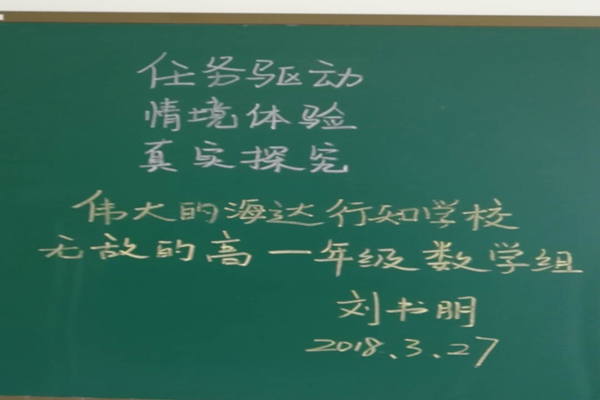 任务驱动
情境体验
真实探究
伟大的海达行知学校
无敌的高一年级数学组
刘书朋
2018.3.27